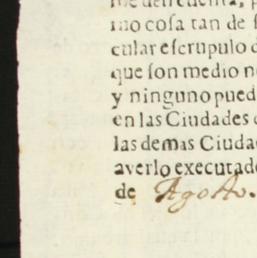 me deis cuenta, p
mo cosa tan de s
cular escrupulo d
que son medio ne
y ninguno pued
en las Ciudades d
las demas Ciuda
averlo executado
de Agosto.